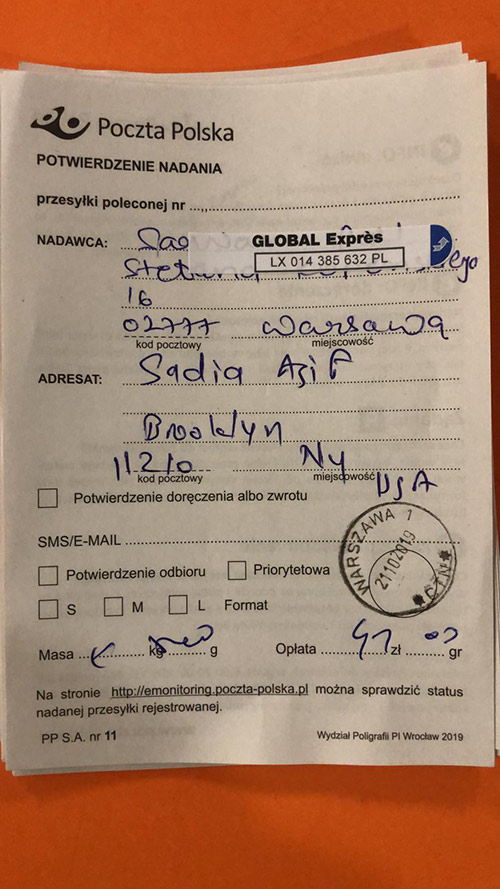 Poczta Polska
POTWIERDZENIE NADANIA
przesyłki poleconej nr
NADAWCA:
GLOBAL Exprès
LX 014 385 632 PL
16
02777 Warsawa
kod pocztowy miejscowość
ADRESAT: Sadia Asif
Brooklyn
11210 NY
kod pocztowy miejscowość USA
Potwierdzenie doręczenia albo zwrotu
SMS/E-MAIL
WARSZAWA 1
21102019
Potwierdzenie odbioru Priorytetowa
S M L Format
Masa kg g Opłata zł gr
Na stronie http://emonitoring.poczta-polska.pl można sprawdzić status
nadanej przesyłki rejestrowanej.
PP S.A. nr 11 Wydział Poligrafii PI Wrocław 2019